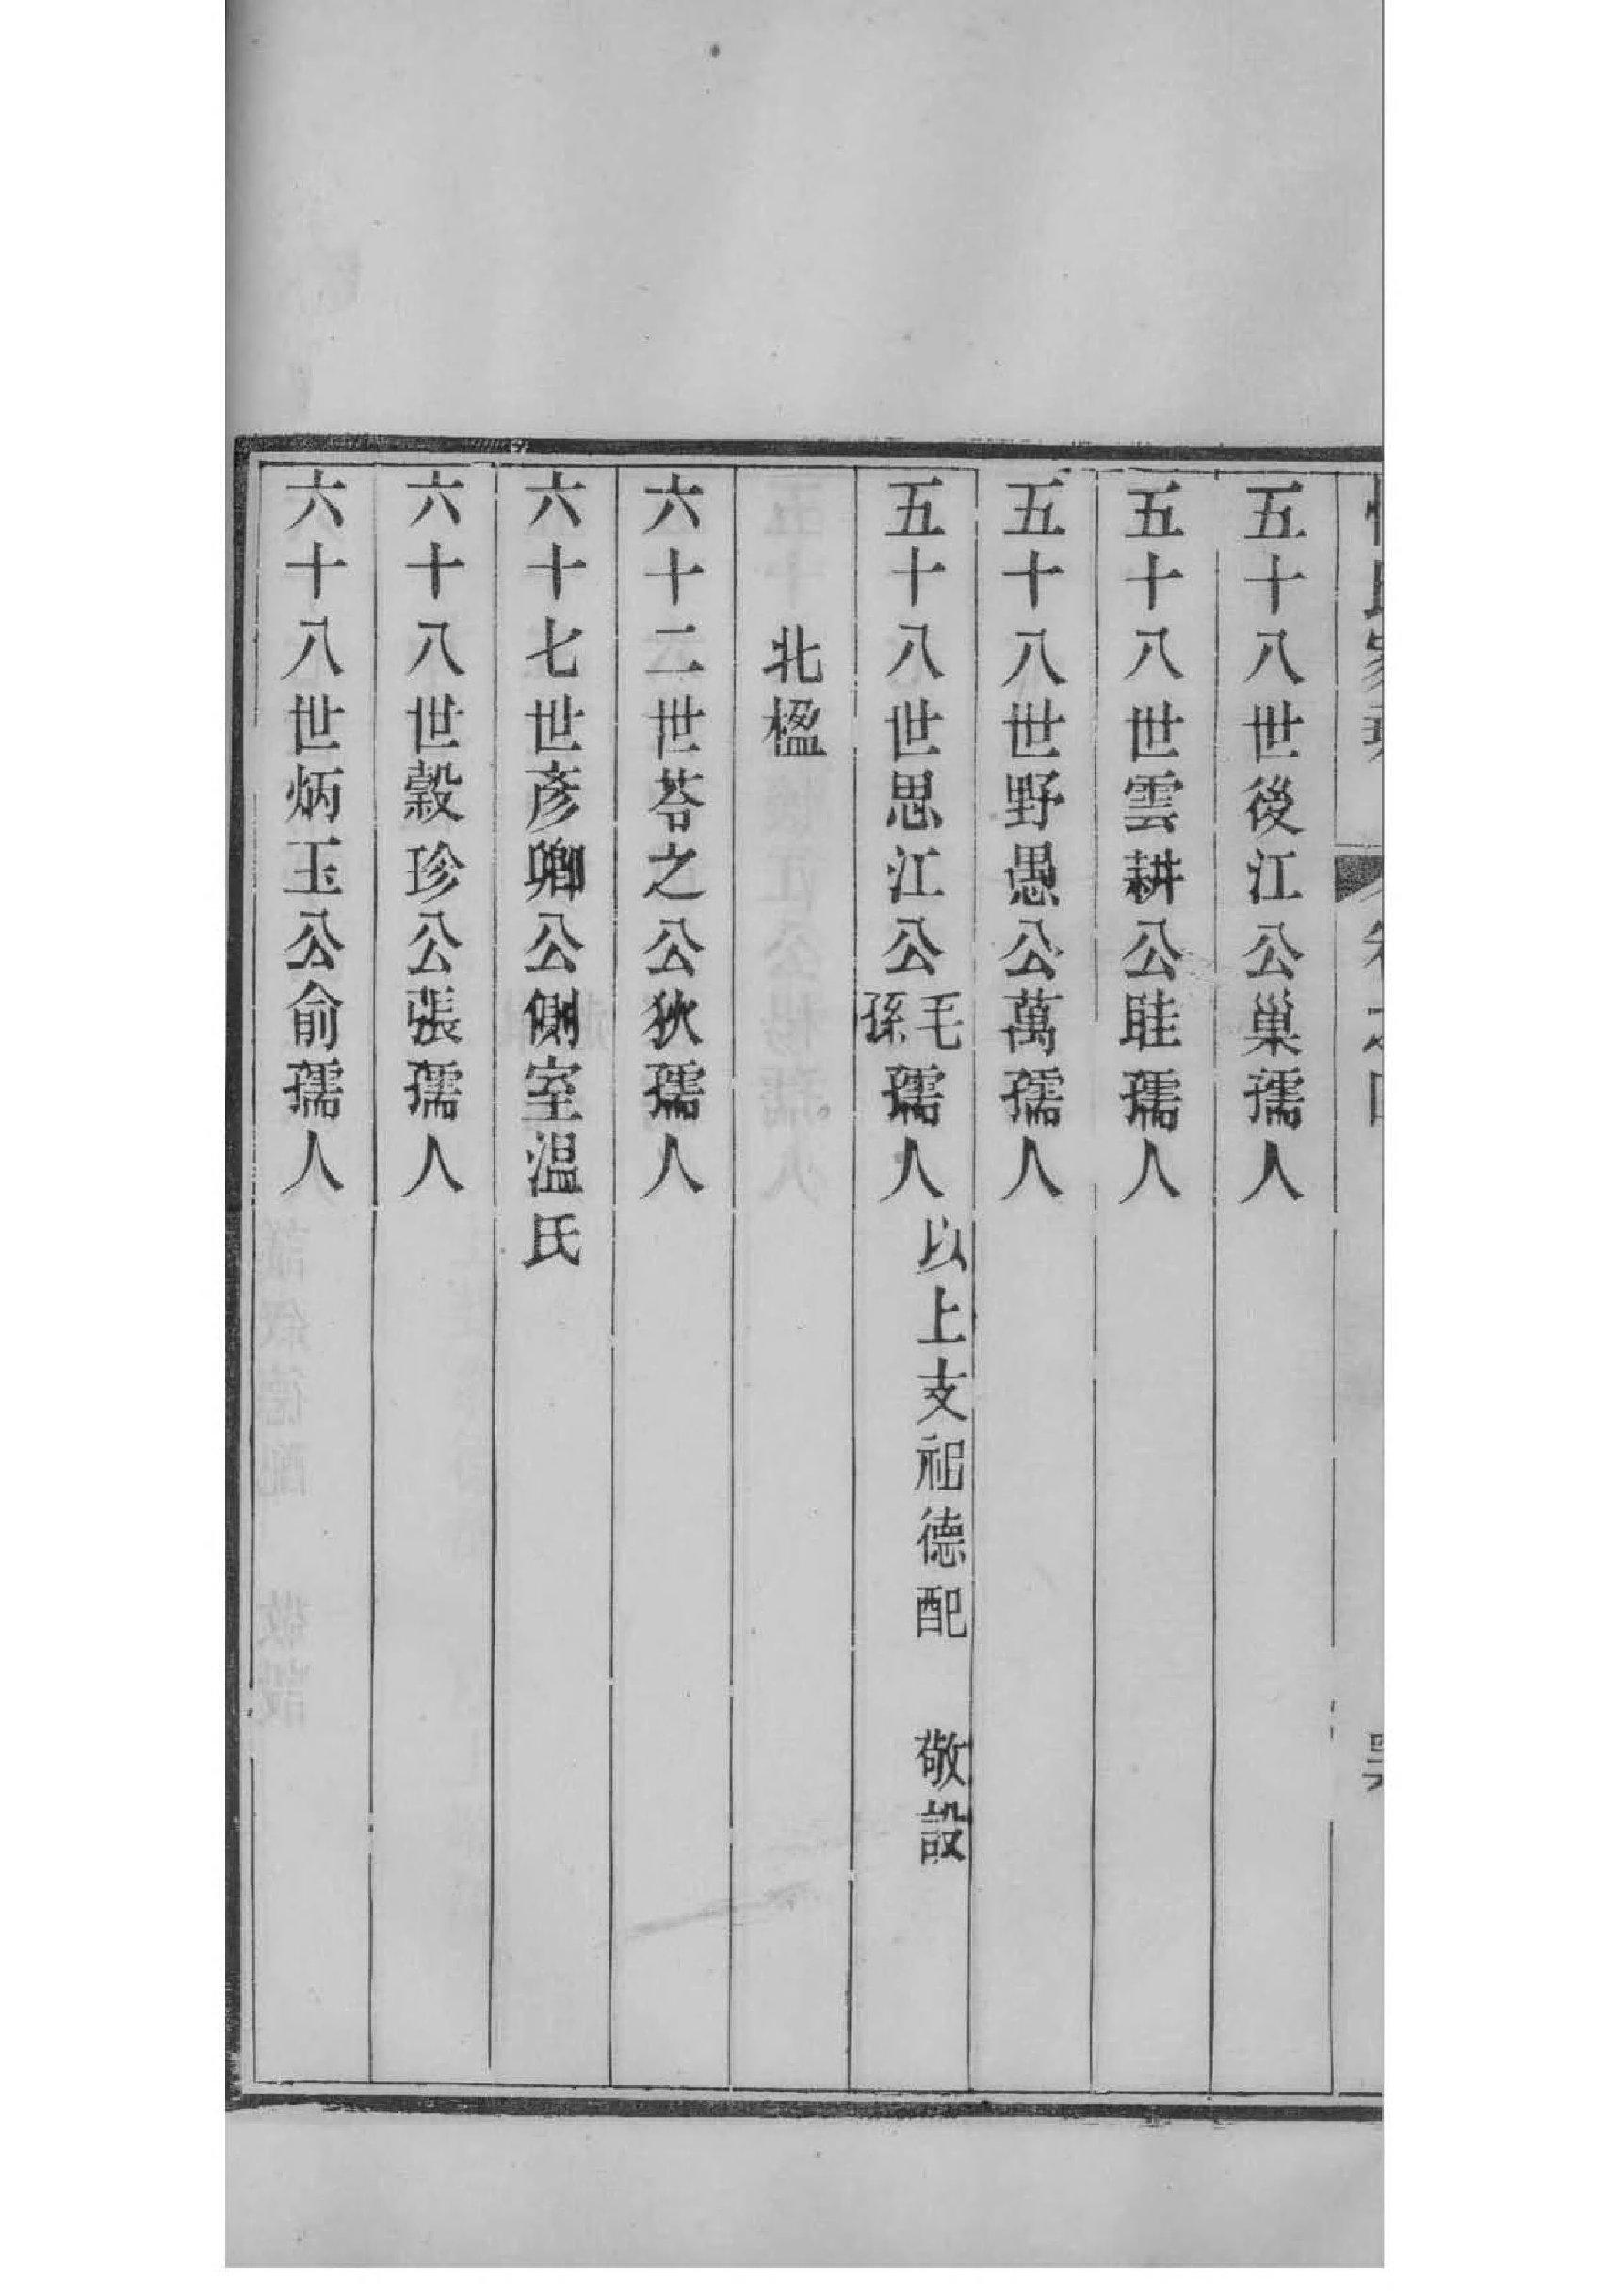 五十八世後江公巢孺人
五十八世雲耕公眭孺人
五十八世野愚公萬孺人
五十八世思江公毛孫孺人 以上支祖德配 敬設
北楹
六十二世苓之公狄孺人
六十七世彥卿公側室溫氏
六十八世穀珍公張孺人
六十八世炳玉公俞孺人